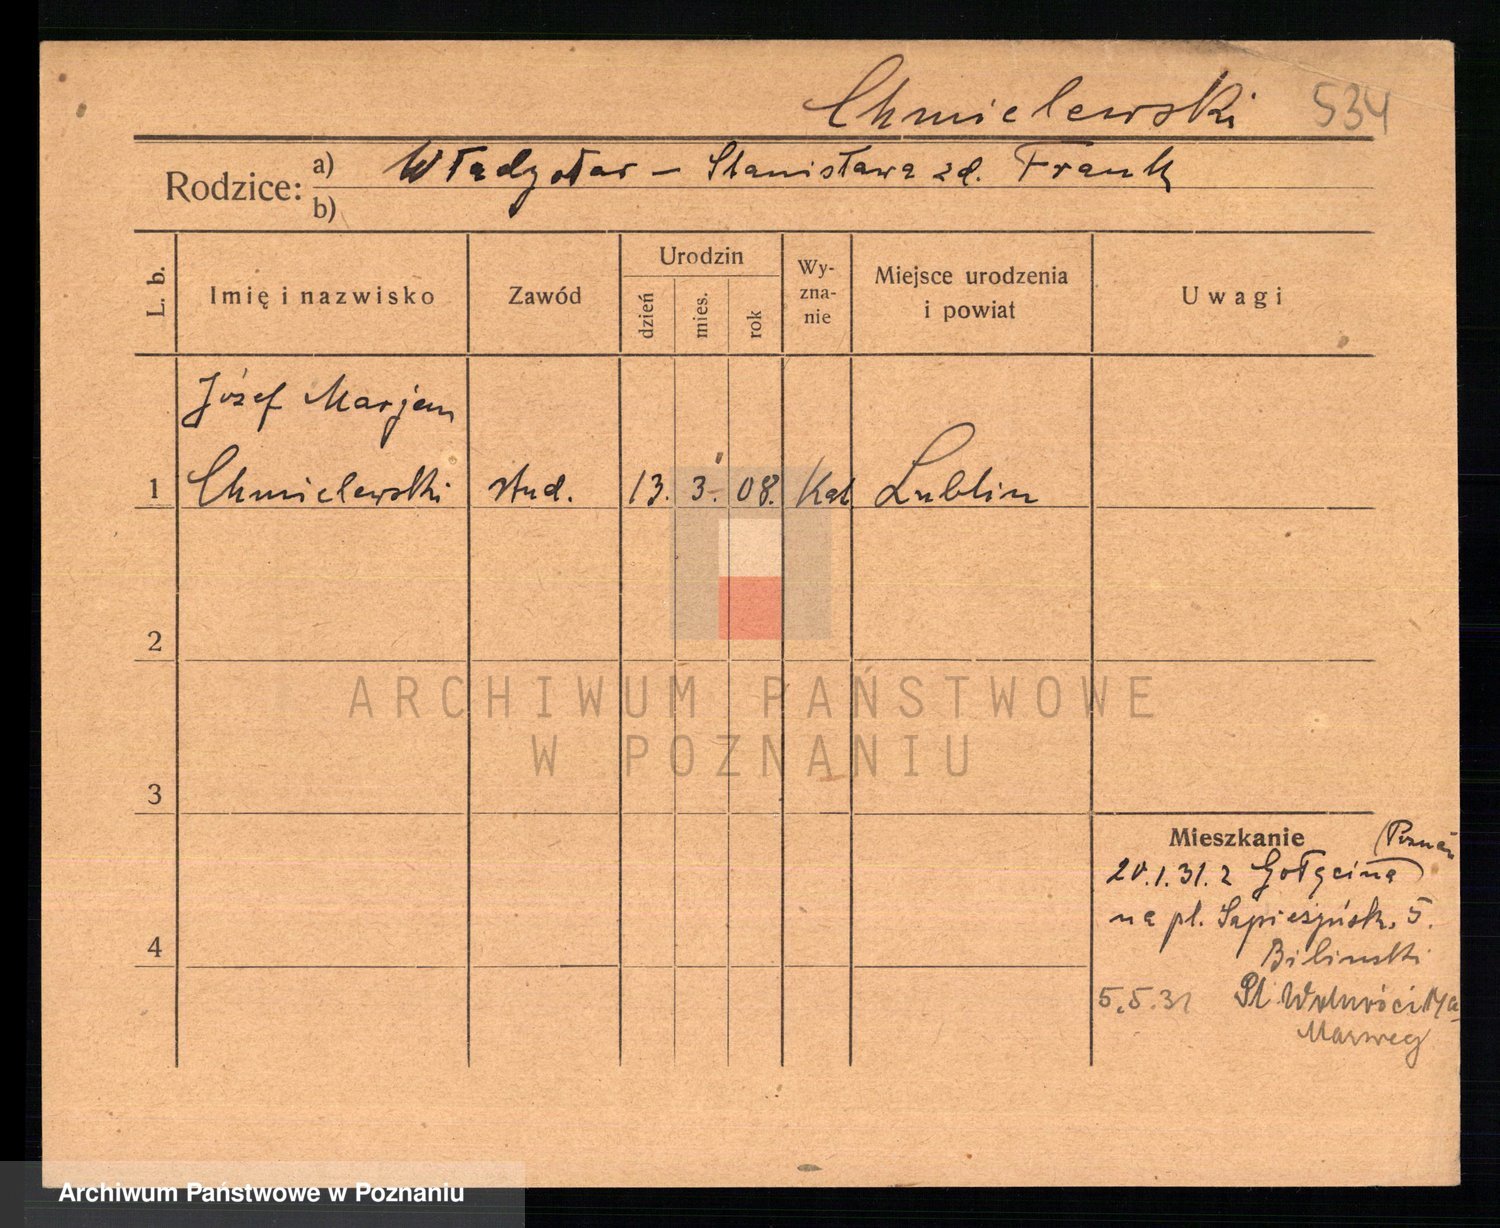 Chmielewski 534
Rodzice: a) Władysław – Stanisława zd. Frank
b)
L. b. Imię i nazwisko Zawód Urodzin dzień mies. rok Wy-zna-nie Miejsce urodzenia i powiat Uwagi
Józef Marjan
1 Chmielewski stud. 13. 3. 08. Kat Lublin
2
ARCHIWUM PAŃSTWOWE
W POZNANIU
3
Mieszkanie (Poznań
20.1.31. z Gołęcina
na pl. Sapieżyńsk. 5.
4
Biliński
5.5.31 Pl. Wolności 14a
Marweg
Archiwum Państwowe w Poznaniu